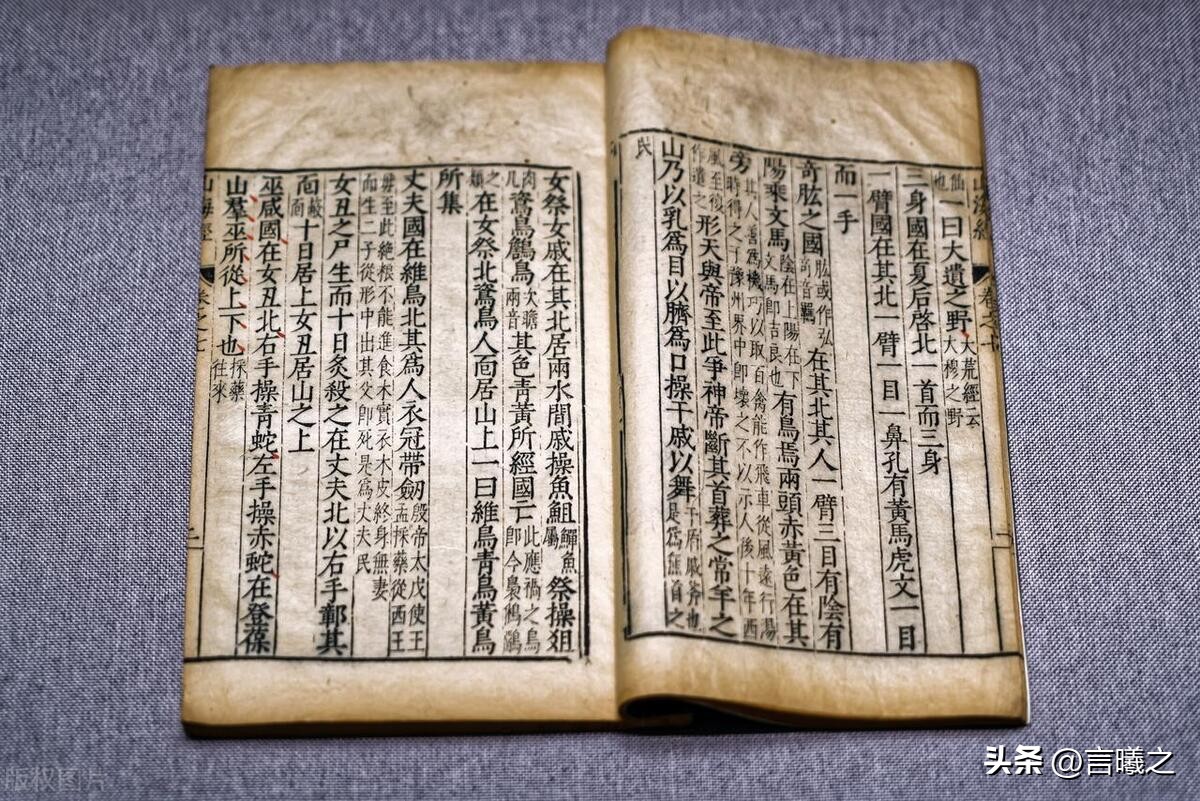 山海經 卷之七 二
仙也一曰大遺之野大荒經云大穆之野
三身國在夏后啓北一首而三身
一臂國在其北一臂一目一鼻孔有黃馬虎文一目
而一手
奇肱之國肱或作弘奇音羈在其北其人一臂三目有陰有
陽乘文馬陰在上陽在下文馬即吉良也有鳥焉兩頭赤黃色在其
旁其人善爲機巧以取百禽能作飛車從風遠行湯時得之于豫州界中即壞之不以示人後十年西
風至復作遣之形天與帝至此爭神帝斷其首葬之常羊之
山乃以乳爲目以臍爲口操干戚以舞干盾戚斧也是爲無首之
民
女祭女戚在其北居兩水間戚操魚䱉鱓魚屬祭操俎
肉几鴍鳥鶬鳥次瞻兩音其色青黃所經國亡此應禍之鳥即今梟鵂鶹
之類在女祭北鴍鳥人面居山上一曰維鳥青鳥黃鳥
所集
丈夫國在維鳥北其爲人衣冠帶劒殷帝太戊使王孟採藥從西王
母至此絶根不能進食木實衣木皮終身無妻而生二子從形中出其父即死是爲丈夫民
女丑之尸生而十日炙殺之在丈夫北以右手鄣其
面蔽面十日居上女丑居山之上
巫咸國在女丑北右手操青蛇左手操赤蛇在登葆
山羣巫所從上下也採藥往來
山海經 卷之七 二
头条 @言曦之
版权图片